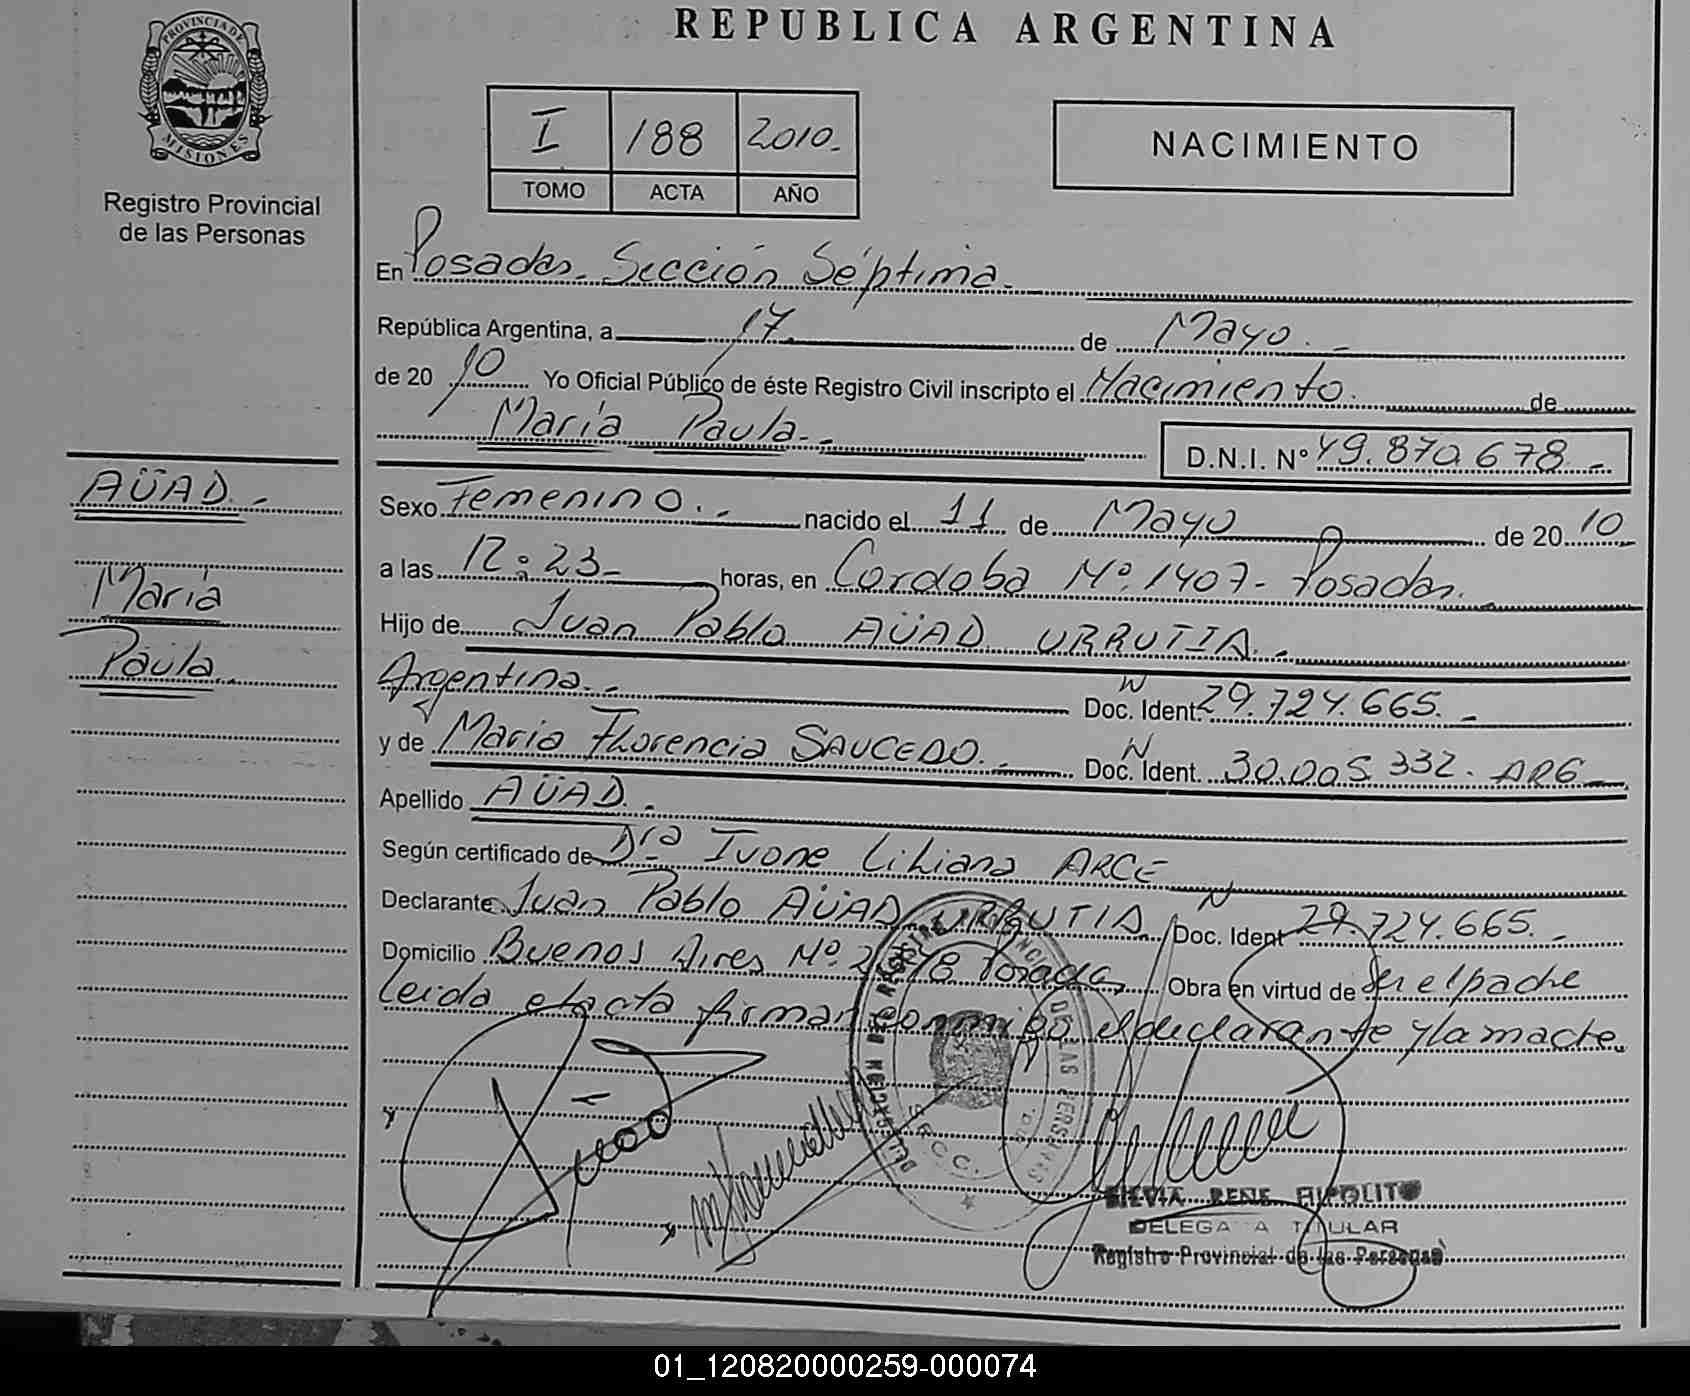 REPUBLICA ARGENTINA
PROVINCIA DE
MISIONES
Registro Provincial
de las Personas
I 188 2010.-
TOMO ACTA AÑO
NACIMIENTO
En Posadas. Sección Séptima.
República Argentina, a 17 de Mayo. -
de 20 10 Yo Oficial Público de éste Registro Civil inscripto el Nacimiento. de
María Paula. -
D.N.I. N° 49.870.678 -
AÜAD. -
María
Paula.
Sexo Femenino. - nacido el 11 de Mayo de 20 10
a las 12:23- horas, en Cordoba Nº. 1407- Posadas.
Hijo de Juan Pablo AÜAD URRUTIA. -
Argentina. - Doc. Ident. 29.724.665. -
y de Maria Florencia SAUCEDO. - Doc. Ident. 30.005.332. ARG
Apellido AÜAD. -
Según certificado de Dra Ivone Liliana ARCE
Declarante Juan Pablo AÜAD URRUTIA. Doc. Ident 29.724.665. -
Domicilio Buenos Aires Nº. Posadas, Obra en virtud de Ser el padre
leida el acta firman conmigo el declarante y la madre.
SILVIA RENE HIPOLITO
DELEGADA TITULAR
Registro Provincial de las Personas
01_120820000259-000074